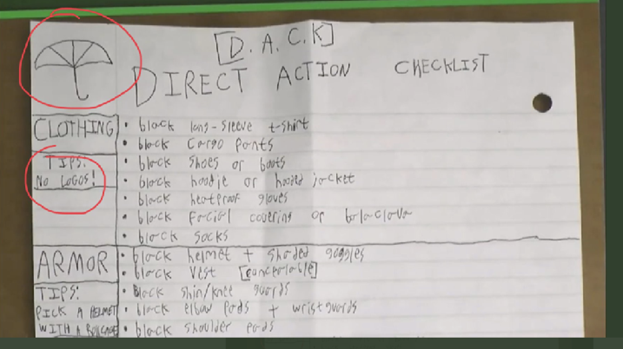 [D. A. C. K]
DIRECT ACTION CHECKLIST
CLOTHING
• black long-sleeve t-shirt
• black cargo pants
TIPS:
NO LOGOS!
• black shoes or boots
• black hoodie or hooded jacket
• black heatproof gloves
• black facial covering or balaclava
• black socks
ARMOR
• black helmet + shaded goggles
• black vest [concealable]
TIPS:
PICK A HELMET
WITH A
• black shin/knee guards
• black elbow pads + wristguards
• black shoulder pads